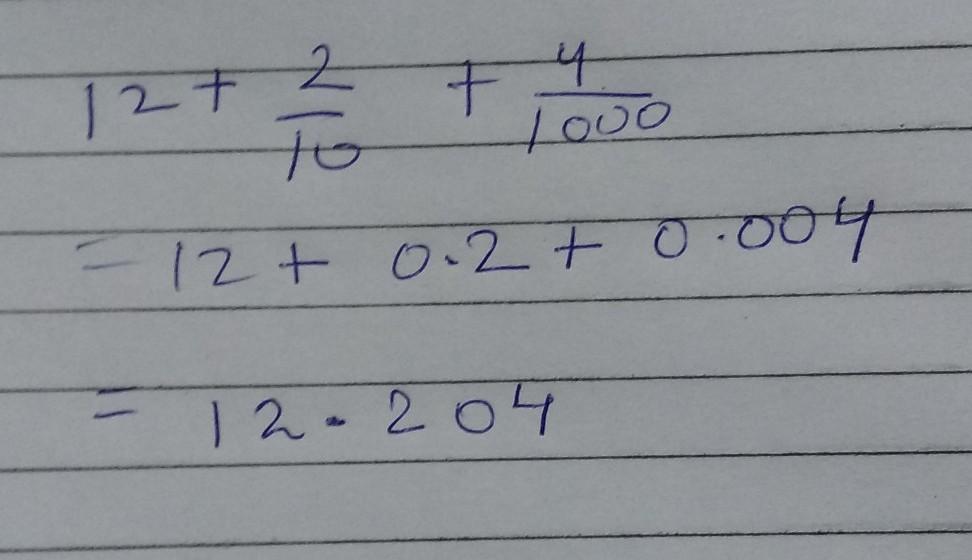 12 + 2/10 + 4/1000
= 12 + 0.2 + 0.004
= 12.204